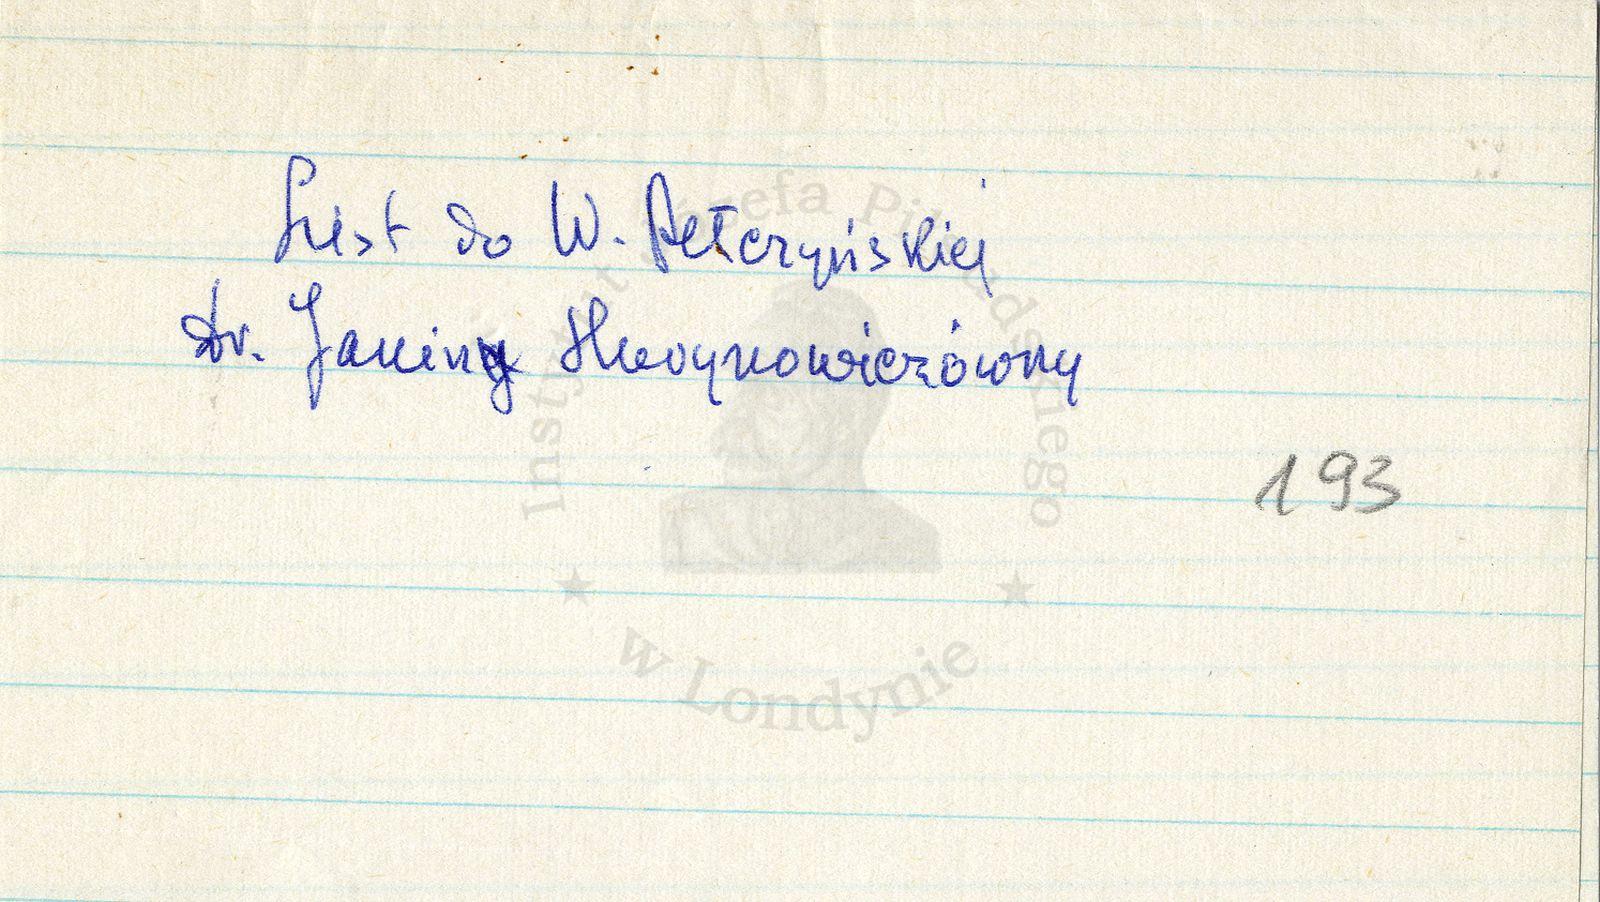 List do W. Pełczyńskiej
Dr. Janiny Hurynowiczówny
193
Instytut Józefa Piłsudskiego
w Londynie